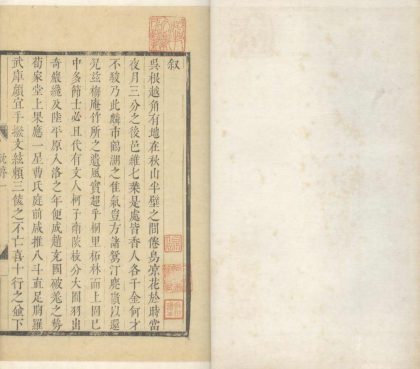 叙
吳根越角有地在秋山半壁之間倦鳥凉花於時當
夜月三分之後邑維七業是處皆香人各千金何才
不駿乃此麟市鶴湖之佳氣豈方諸鴛汀鹿嶺以還
况兹梅庵竹所之遺風實超乎桐里柘林而上固已
中多節士必且代有文人柯子南陔枝分大圓羽出
奇巖纔及陸平原入洛之年便成趙充國破羌之勢
荀家堂上果應一星曹氏庭前咸推八斗直足胸羅
武庫顧宜手掞文紘賴三俊之不亡喜十行之並下